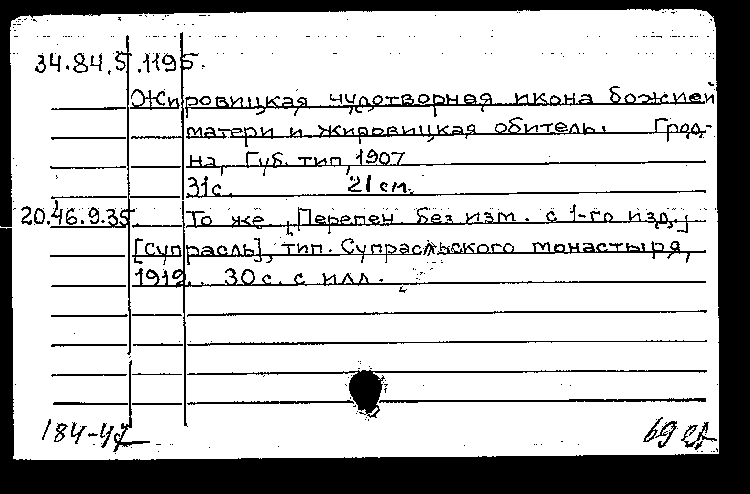 34.84.5.1195.
Жировицкая чудотворная икона божией
матери и Жировицкая обитель. Грод-
на, Губ. тип, 1907
31с. 21 см.
20.46.9.35. То же [Перепеч без изм. с 1-го изд.]
[Супрасль], тип. Супрасльского монастыря,
1912. 30 с. с илл.
184-47